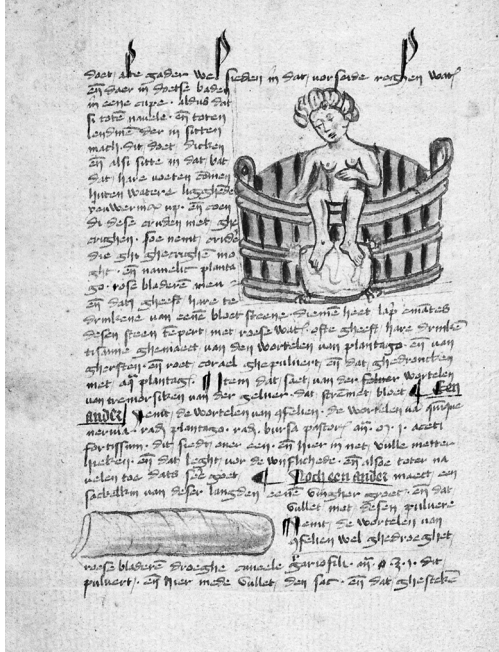 doet alte gader wel sieden in dat vorseide reghen wat
en daer in doetse baden
in eene cupe. aldus dat
si toten navele. en toten
lendinen der in sitten
mach. dit doet dicken
en alsi sitte in dat bat
dat hare voeten comen
buten watere
up. en coen
di dese cruden met ghe
crighen. soe nemt crude
die ghi ghecrighe mo
ght. en namelic planta
go. rose bladeren men
en dan gheeft hare te
drinkene van eene bloet steene. diemen heet lap ematites
desen steen tempert met roese wat. ofte gheeft hare drinke
tisanne ghemaect van den wortelen van plantago. en van
ghersten. en roet corael ghepulvert. en dat ghedroncken
met aq plantag. Item dat saet van der wortelen
van der gheluer. dat stremet bloet Een
ander Nemt de wortelen van de wortelen va quique
nervia. rad plantag. rad. bursa pastor. an. aceti
fortissimi. dit siedt over een. en hier in net wulle metter
vetten. en dat leght vor de wiflichede. en alsoe toter na
velen toe dats seer goet Noch een ander maect een
sackelkin van deser langden eenen vingher groet. en dat
vullet met desen pulvere
Nemt de wortelen van
wel ghedroeghet
roese bladeren droeghe caneele gariofili. an. dit
pulvert. en hier mede vullet den sac. en dat ghesteken